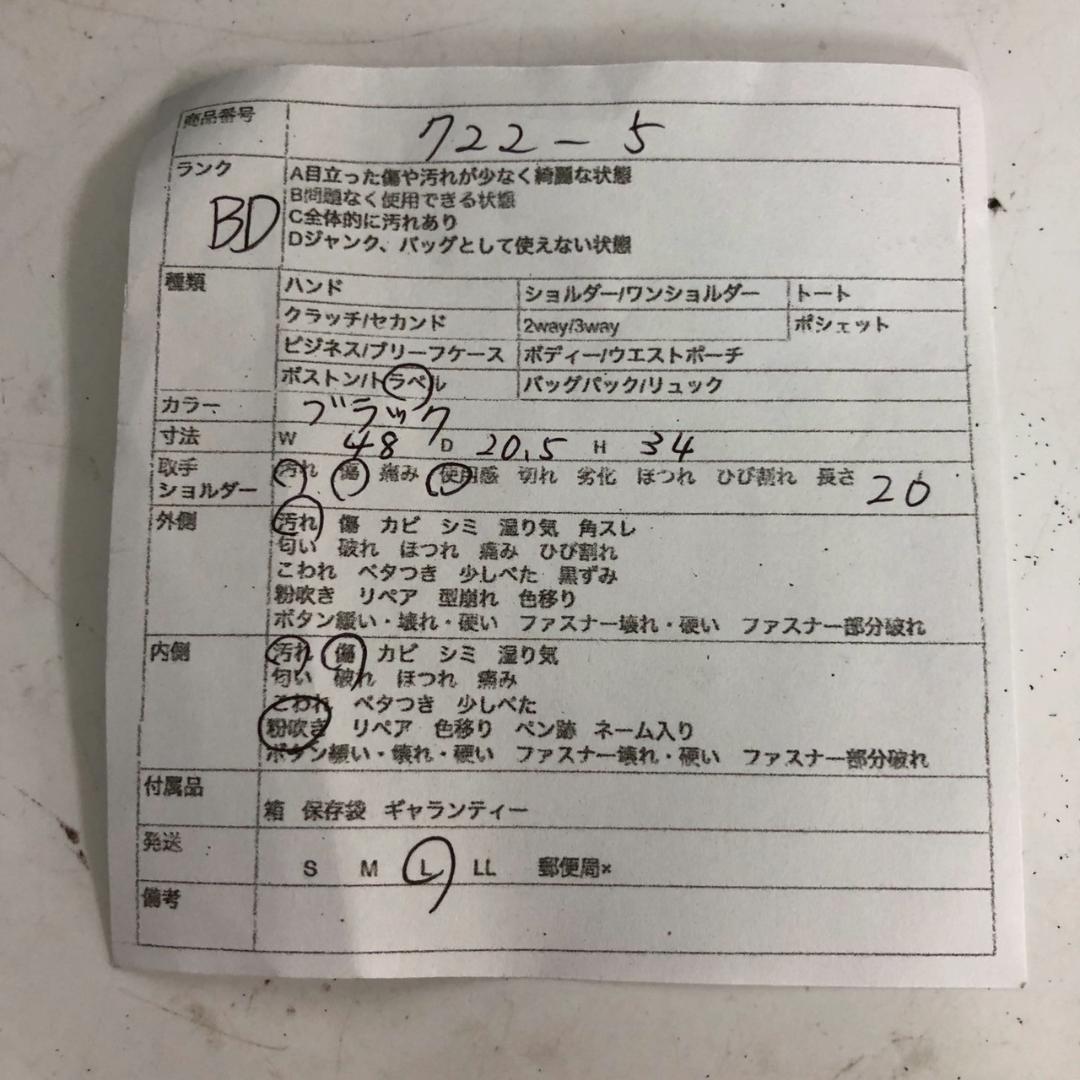 商品番号 722-5
ランク BD
A目立った傷や汚れが少なく綺麗な状態
B問題なく使用できる状態
C全体的に汚れあり
Dジャンク、バッグとして使えない状態
種類 ハンド ショルダー/ワンショルダー トート
クラッチ/セカンド 2way/3way ポシェット
ビジネス/ブリーフケース ボディー/ウエストポーチ
ボストン/トラベル バッグパック/リュック
カラー ブラック
寸法 W 48 D 20.5 H 34
取手 汚れ 傷 痛み 使用感 切れ 劣化 ほつれ ひび割れ 長さ 20
ショルダー
外側 汚れ 傷 カビ シミ 湿り気 角スレ
匂い 破れ ほつれ 痛み ひび割れ
こわれ ベタつき 少しべた 黒ずみ
粉吹き リペア 型崩れ 色移り
ボタン緩い・壊れ・硬い ファスナー壊れ・硬い ファスナー部分破れ
内側 汚れ 傷 カビ シミ 湿り気
匂い 破れ ほつれ 痛み
こわれ ベタつき 少しべた
粉吹き リペア 色移り ペン跡 ネーム入り
ボタン緩い・壊れ・硬い ファスナー壊れ・硬い ファスナー部分破れ
付属品 箱 保存袋 ギャランティー
発送 S M L LL 郵便局×
備考